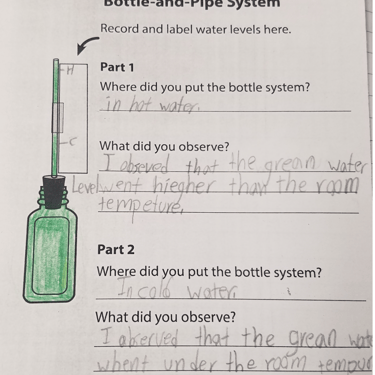 Bottle-and-Pipe System
Record and label water levels here.
H
Part 1
Where did you put the bottle system?
in hot water.
C
What did you observe?
I obseved that the grean water
Level went hiegher than the room
tempeture.
Part 2
Where did you put the bottle system?
In cold water.
What did you observe?
I observed that the grean wate
whent under the room tempour